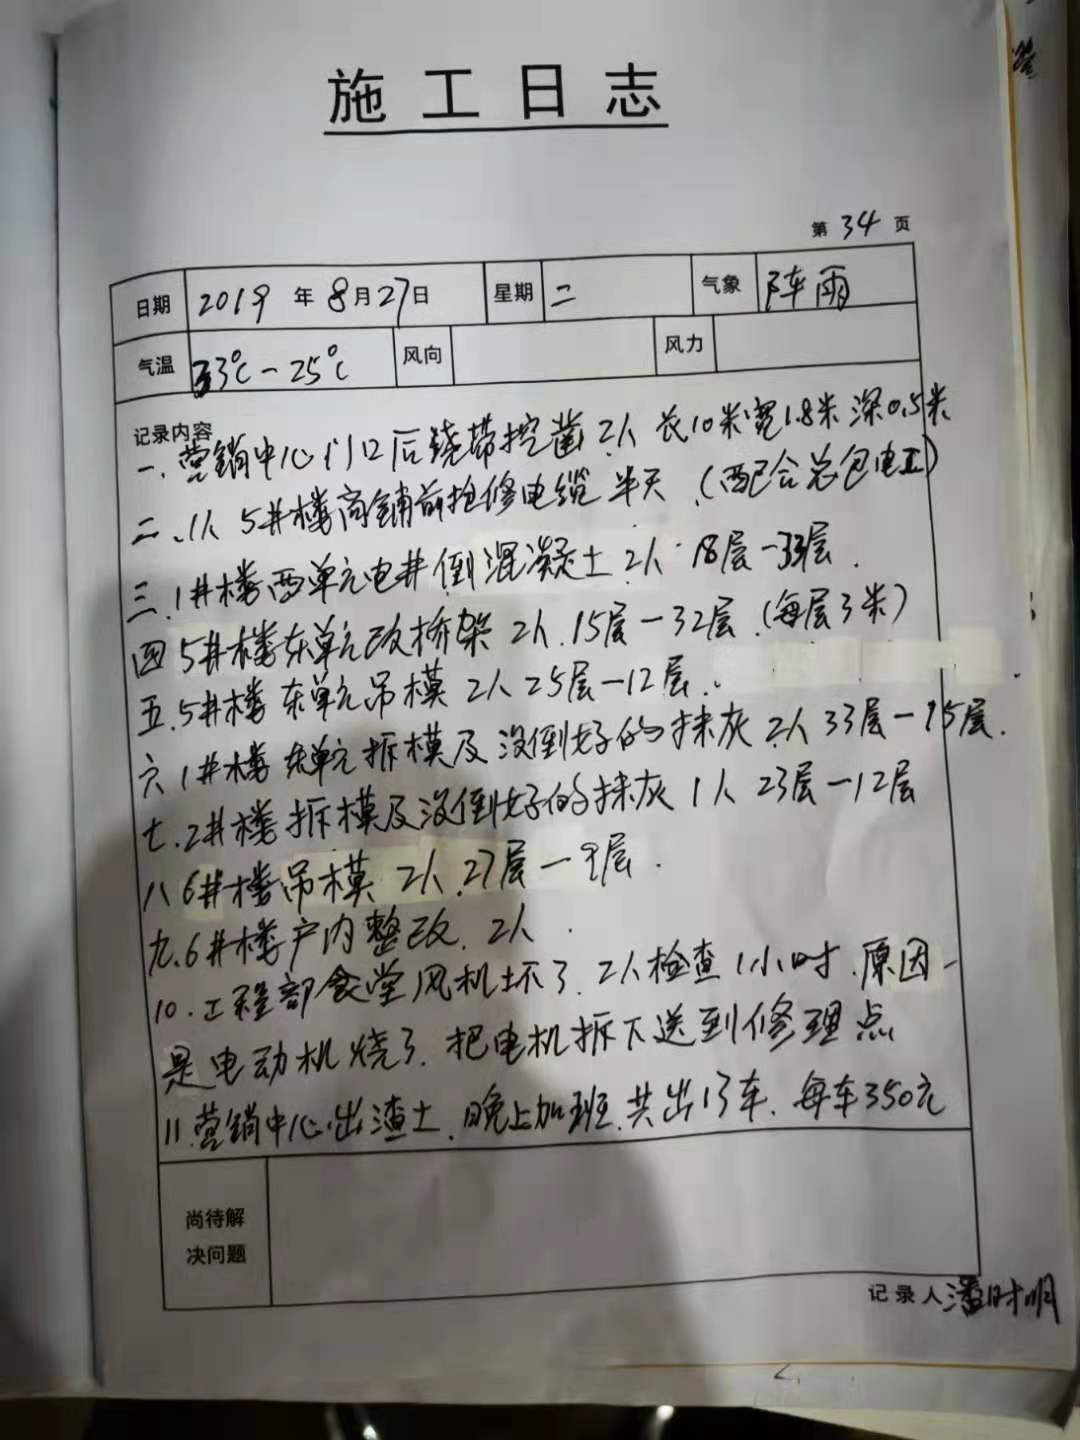 施工日志
第 34 页
日期 2019 年 8月27日 星期 二 气象 阵雨
气温 33℃-25℃ 风向 风力
记录内容
一.营销中心门口后浇带挖凿 2人 长10米宽1.8米深0.5米
二、1人 5井楼商铺前抢修电缆 半天.(配合总包电工)
三.1井楼西单元电井倒混凝土 2人.18层-33层.
四 5井楼东单元改桥架 2人.15层-32层.(每层3米)
五.5井楼东单元吊模 2人 25层-12层.
六 1井楼东单元拆模及没倒好的抹灰 2人 33层-15层.
七.2井楼拆模及没倒好的抹灰 1人 23层-12层
八 6井楼吊模 2人.27层-9层.
九.6井楼户内整改.2人.
10.工程部食堂风机坏了.2人检查1小时.原因-
是电动机烧了.把电机拆下送到修理点
11.营销中心出渣土.晚上加班.共出13车.每车350元
尚待解
决问题
记录人 潘时明